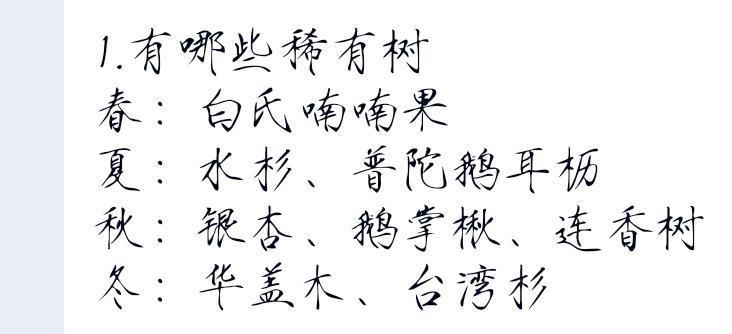 1.有哪些稀有树
春：白氏喃喃果
夏：水杉、普陀鹅耳枥
秋：银杏、鹅掌楸、连香树
冬：华盖木、台湾杉